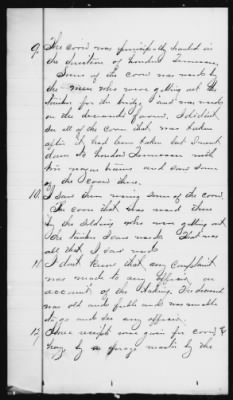 9. The corn was principally hauled in
the direction of Loudon Tennessee,
Some of the corn was used by
the men who were getting out the
timber for the bridge and was used
on the demands of war. I did not
see all of the corn that was taken
after it had been taken but I went
down to Loudon Tennessee with
his wagon teams and saw some
of the corn there.
10. I saw them using some of the corn.
The corn that was used there
by the soldiers who were getting out
the timber I saw used. That was
all that I saw used
11. I dont know that any complaint
was made to any officer on
account of the taking. The deceased
was old and feeble and was unable
to go and see any officer.
12. There receipt was given for corn &
hay by a forage master by the